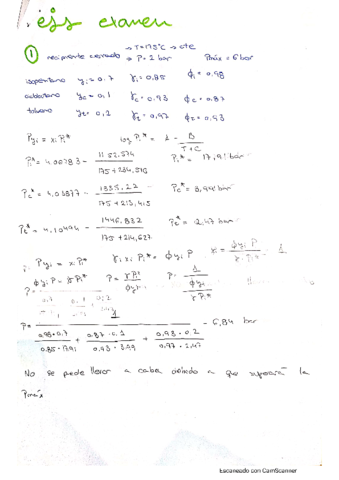 ejs examen
① recipiente cerrado → T=175°C → cte
→ P=2 bar Pmáx=6bar
isopentano yi=0.7 γi=0,85 ϕi=0.98
yc=0,1 γc=0.93 ϕc=0.87
tolueno yt=0,2 γt=0,97 ϕt=0.93
Pyi = xiPi* log Pi* = A - B/(T+C)
Pi*= - 1152.574/(175+234,516) Pi* = 17,91 bar
Pc* = - 1335,22/(175+213,415) Pc* = bar
Pt* = - 1446,832/(175+214,627) Pt* = 2,47 bar
Pyi = xiPi* γi xi Pi* = ϕyi P x = ϕyi P/γ.Pi* = 1
ϕyi P = γPi* P = γPi*/ϕyi P = 1/(ϕyi/γPi*)
P = 1/(0.98·0.7/(0.85·17.91) + 0.87·0.1/(0.93·3.99) + 0.93·0.2/(0.97·2.47)) = 6,84 bar
No se puede llevar a cabo debido a que superará la
Pmáx
Escaneado con CamScanner